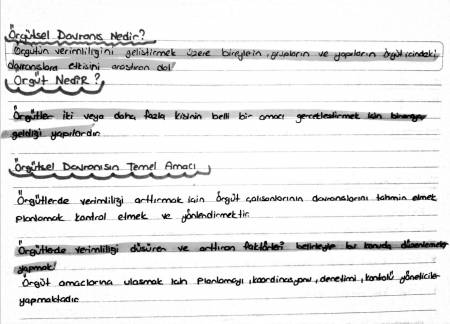 Örgütsel Davranış Nedir?
Örgütün verimliliğini geliştirmek üzere bireylerin, grupların ve yapıların örgüt içindeki
davranışlara etkisini araştıran dal
Örgüt NedİR?
Örgütler iki veya daha fazla kişinin belli bir amacı gerçekleştirmek için biraraya
geldiği yapılardır.
Örgütsel Davranışın Temel Amacı
Örgütlerde verimliliği arttırmak için örgüt çalışanlarının davranışlarını tahmin etmek
planlamak kontrol etmek ve yönlendirmektir.
Örgütlerde verimliliği düşüren ve arttıran faktörleri belirleyip bu konuda düzenlemeler
yapmak
Örgüt amaçlarına ulaşmak için planlamayı, koordinasyonu, denetimi, kontrolü yöneticiler
yapmaktadır